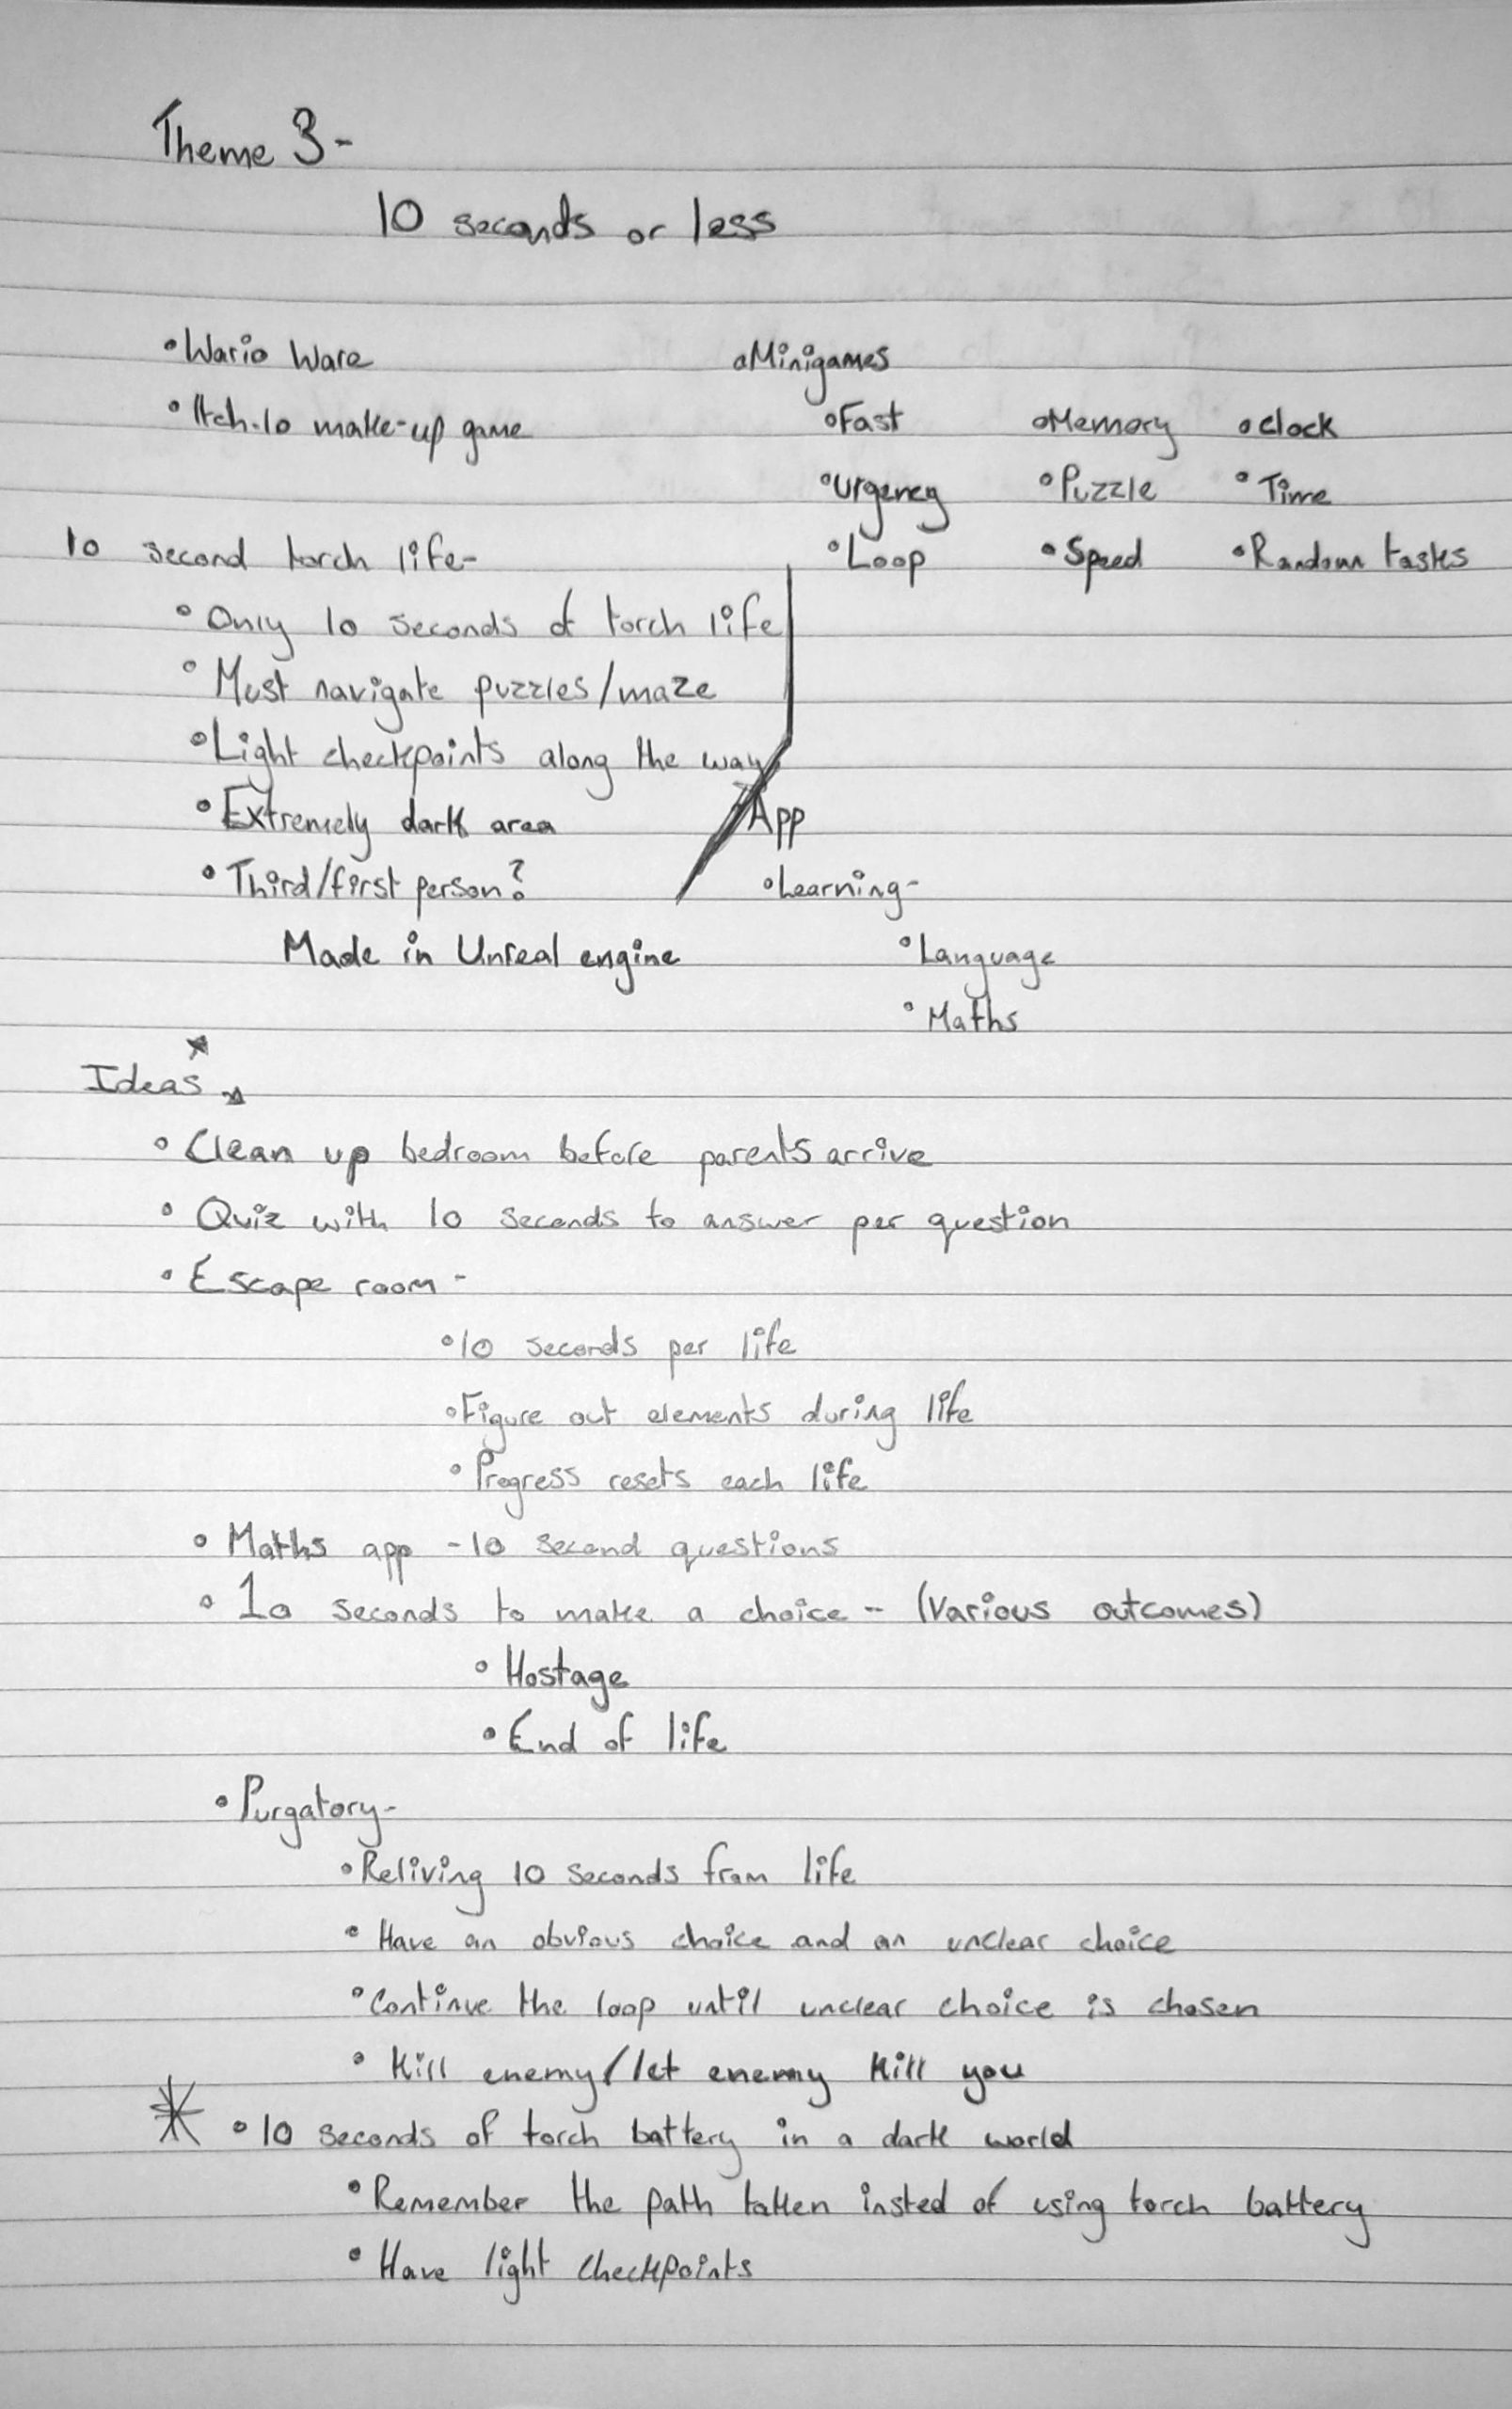 Theme 3-
10 seconds or less
• Wario Ware
• Itch.io make-up game
• Minigames
• Fast • Memory • Clock
• Urgency • Puzzle • Time
• Loop • Speed • Random tasks
10 second torch life-
• Only 10 seconds of torch life
• Must navigate puzzles/maze
• Light checkpoints along the way
• Extremely dark area
• Third/first person?
Made in Unreal engine
App
• Learning-
• Language
• Maths
Ideas
• Clean up bedroom before parents arrive
• Quiz with 10 seconds to answer per question
• Escape room -
• 10 seconds per life
• Figure out elements during life
• Progress resets each life
• Maths app - 10 second questions
• 10 seconds to make a choice - (Various outcomes)
• Hostage
• End of life
• Purgatory-
• Reliving 10 seconds from life
• Have an obvious choice and an unclear choice
• Continue the loop until unclear choice is chosen
• Kill enemy/let enemy kill you
* • 10 seconds of torch battery in a dark world
• Remember the path taken insted of using torch battery
• Have light checkpoints